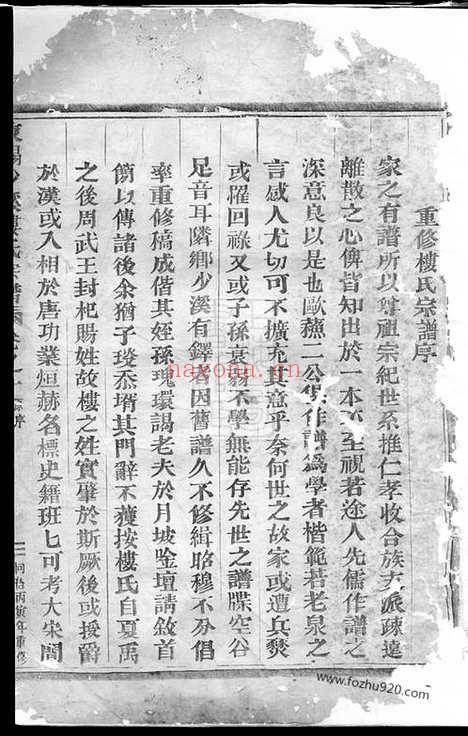 重修樓氏宗譜序
家之有譜所以尊祖宗紀世系推仁孝收合族支派疎遠
離散之心俾皆知出於一本不至視若途人先儒作譜之
深意良以是也歐蘇二公俱作譜爲學者楷範若老泉之
言感人尤切可不擴充其意乎奈何世之故家或遭兵燹
或罹回祿又或子孫衰弱不學無能存先世之譜牒空谷
足音耳隣鄉少溪有鐸者因舊譜久不修緝昭穆不分倡
率重修稿成偕其姪孫瑰環謁老夫於月坡鉴壇請敘首
簡以傳諸後余猶子琰忝壻其門辭不獲按樓氏自夏禹
之後周武王封杞賜姓故樓之姓實肇於斯厥後或援爵
於漢或入相於唐功業烜赫名標史籍班匕可考大宋間
東陽 溪樓氏宗譜 卷之一 序
一 同治丙寅年重修
hayonn.cn
www.fozhu920.com